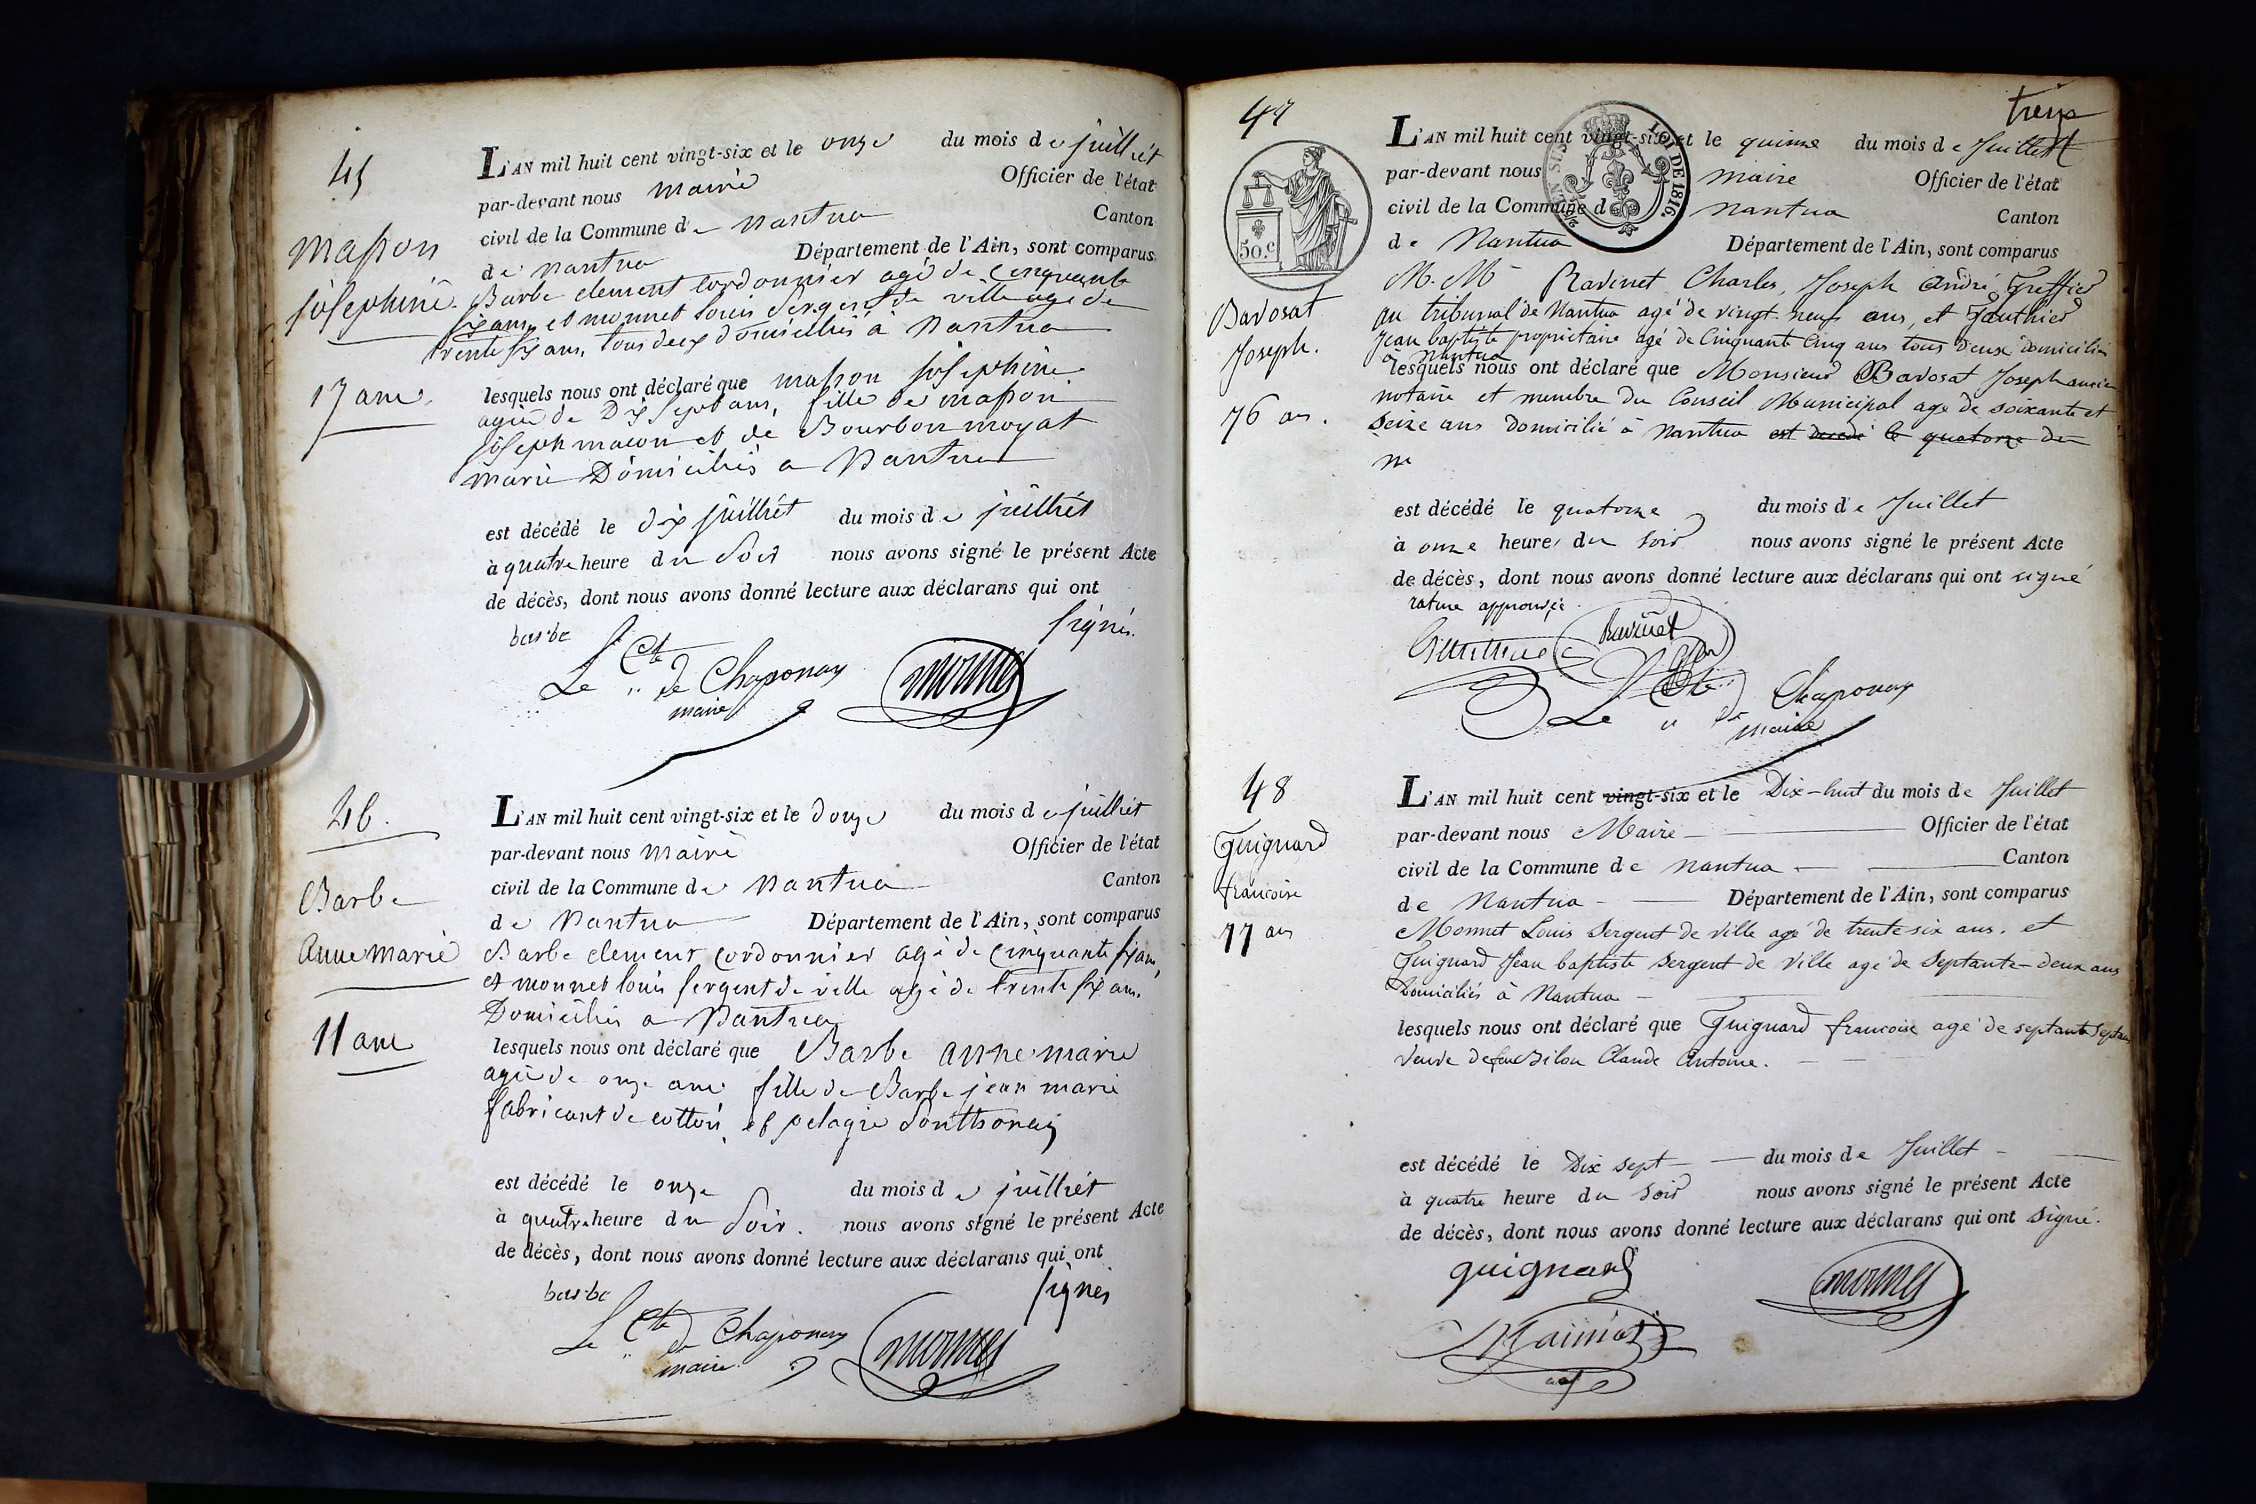 45
Masson
Josephine
17 ans
L'AN mil huit cent vingt-six et le onze du mois de juillièt
par-devant nous maire Officier de l'état
civil de la Commune de Nantua Canton
de Nantua Département de l'Ain, sont comparus
Barbe clement cordonnier agé de cinquante
six ans et monnet louis sergent de ville agé de
trente six ans, tous deux domiciliés à Nantua
lesquels nous ont déclaré que masson josephine
agée de Dix sept ans, fille de masson
joseph macon et de Bourbon moyat
marie Domiciliés a Nantua
est décédé le dix juillièt du mois de juillièt
à quatre heure du soir nous avons signé le présent Acte
de décès, dont nous avons donné lecture aux déclarans qui ont
signés.
barbe
Le Cte de Chaponay
maire
monnet
46.
Barbe
anne marie
11 ans
L'AN mil huit cent vingt-six et le douze du mois de juillièt
par-devant nous maire Officier de l'état
civil de la Commune de Nantua Canton
de Nantua Département de l'Ain, sont comparus
Barbe clement cordonnier agé de cinquante six ans,
et monnet louis sergent de ville agé de trente six ans.
Domiciliés a Nantua
lesquels nous ont déclaré que Barbe anne marie
agée de onze ans fille de Barbe jean marie
fabricant de cotton et pelagie
est décédé le onze du mois de juillièt
à quatre heure du soir. nous avons signé le présent Acte
de décès, dont nous avons donné lecture aux déclarans qui ont
signés
barbe
Le Cte de Chaponay
maire
monnet
47
treize
50 c
LOI DE 1816.
Bavosat
Joseph.
76 ans.
L'AN mil huit cent vingt-six et le quinze du mois de Juillet
par-devant nous maire Officier de l'état
civil de la Commune de Nantua Canton
de Nantua Département de l'Ain, sont comparus
M. M. Ravinet Charles, Joseph André Greffier
au tribunal de Nantua agé de vingt-neuf ans, et Gauthier
Jean baptiste propriétaire agé de Cinquante cinq ans tous deux domiciliés
à Nantua
lesquels nous ont déclaré que Monsieur Bavosat Joseph ancien
notaire et membre du Conseil Municipal agé de soixante et
seize ans domicilié à Nantua est décédé le quatorze du
m
est décédé le quatorze du mois de Juillet
à onze heures du soir nous avons signé le présent Acte
de décès, dont nous avons donné lecture aux déclarans qui ont signé
rature approuvée.
Ravinet
Le Cte de Chaponay
maire
48
Guignard
francoise
77 ans
L'AN mil huit cent vingt-six et le Dix-huit du mois de Juillet
par-devant nous Maire Officier de l'état
civil de la Commune de Nantua Canton
de Nantua Département de l'Ain, sont comparus
Monnet Louis Sergent de ville agé de trente six ans. et
Guignard Jean baptiste sergent de ville agé de septante-deux ans
Domiciliés à Nantua
lesquels nous ont déclaré que Guignard francoise agé de septante sept ans
veuve de feu Claude Antoine.
est décédé le Dix sept du mois de Juillet
à quatre heure du soir nous avons signé le présent Acte
de décès, dont nous avons donné lecture aux déclarans qui ont signé.
guignard
monnet